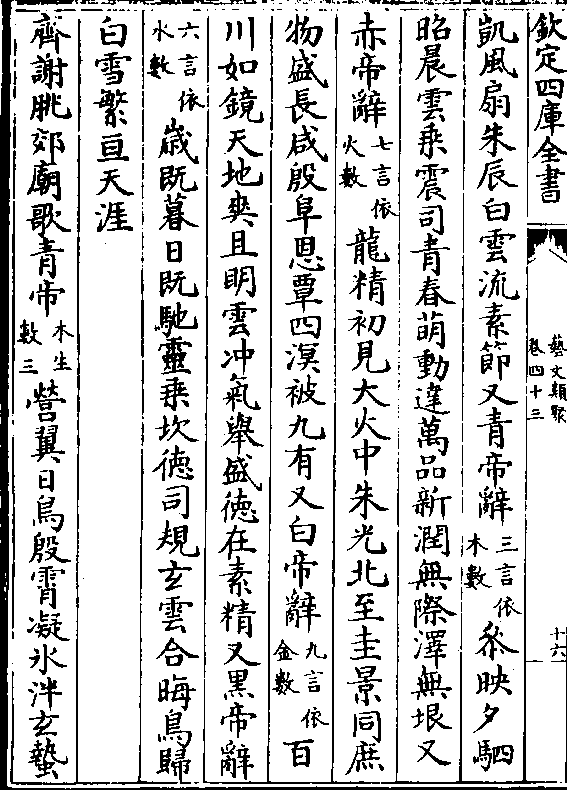 欽定四庫全書
藝文類聚
卷四十三
十六
凱風扇朱辰白雲流素節又青帝辭三言依木數叅映夕駟
昭晨雲乗震司青春萌動達萬品新潤無際澤無垠又
赤帝辭七言依火數龍精初見大火中朱光北至圭景同庶
物盛長咸殷阜恩覃四溟被九有又白帝辭九言依金數百
川如鏡天地爽且明雲冲氣舉盛徳在素精又黑帝辭
六言依水數歳既暮日既馳靈乗坎徳司規玄雲合晦鳥歸
白雪繁亘天涯
齊謝朓郊廟歌青帝木生數三營翼日鳥殷霄凝氷泮玄蟄